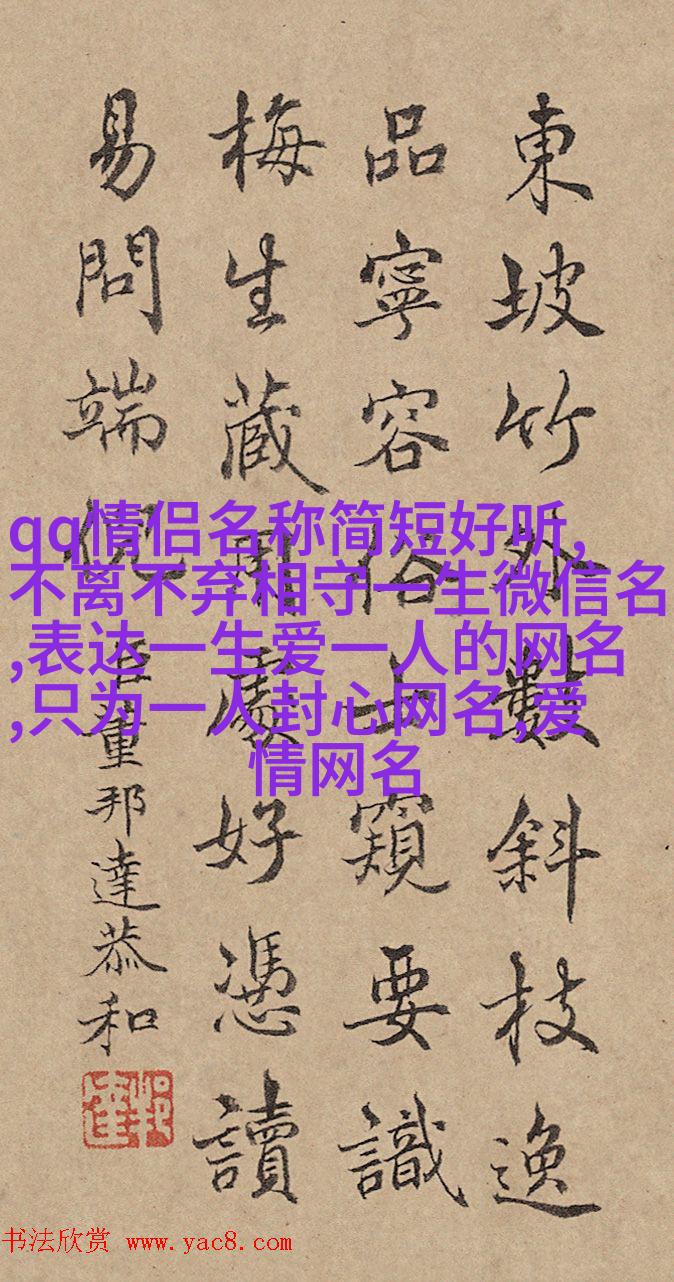 東坡竹外數斜枝逸
品寧容俗士窺要識
梅生藏用處好憑讀
易問端倪 臣董邦達恭和
qq情侣名称简短好听,
不离不弃相守一生微信名
,表达一生爱一人的网名
,只为一人封心网名,爱
情网名
书法欣赏 www.yac8.com